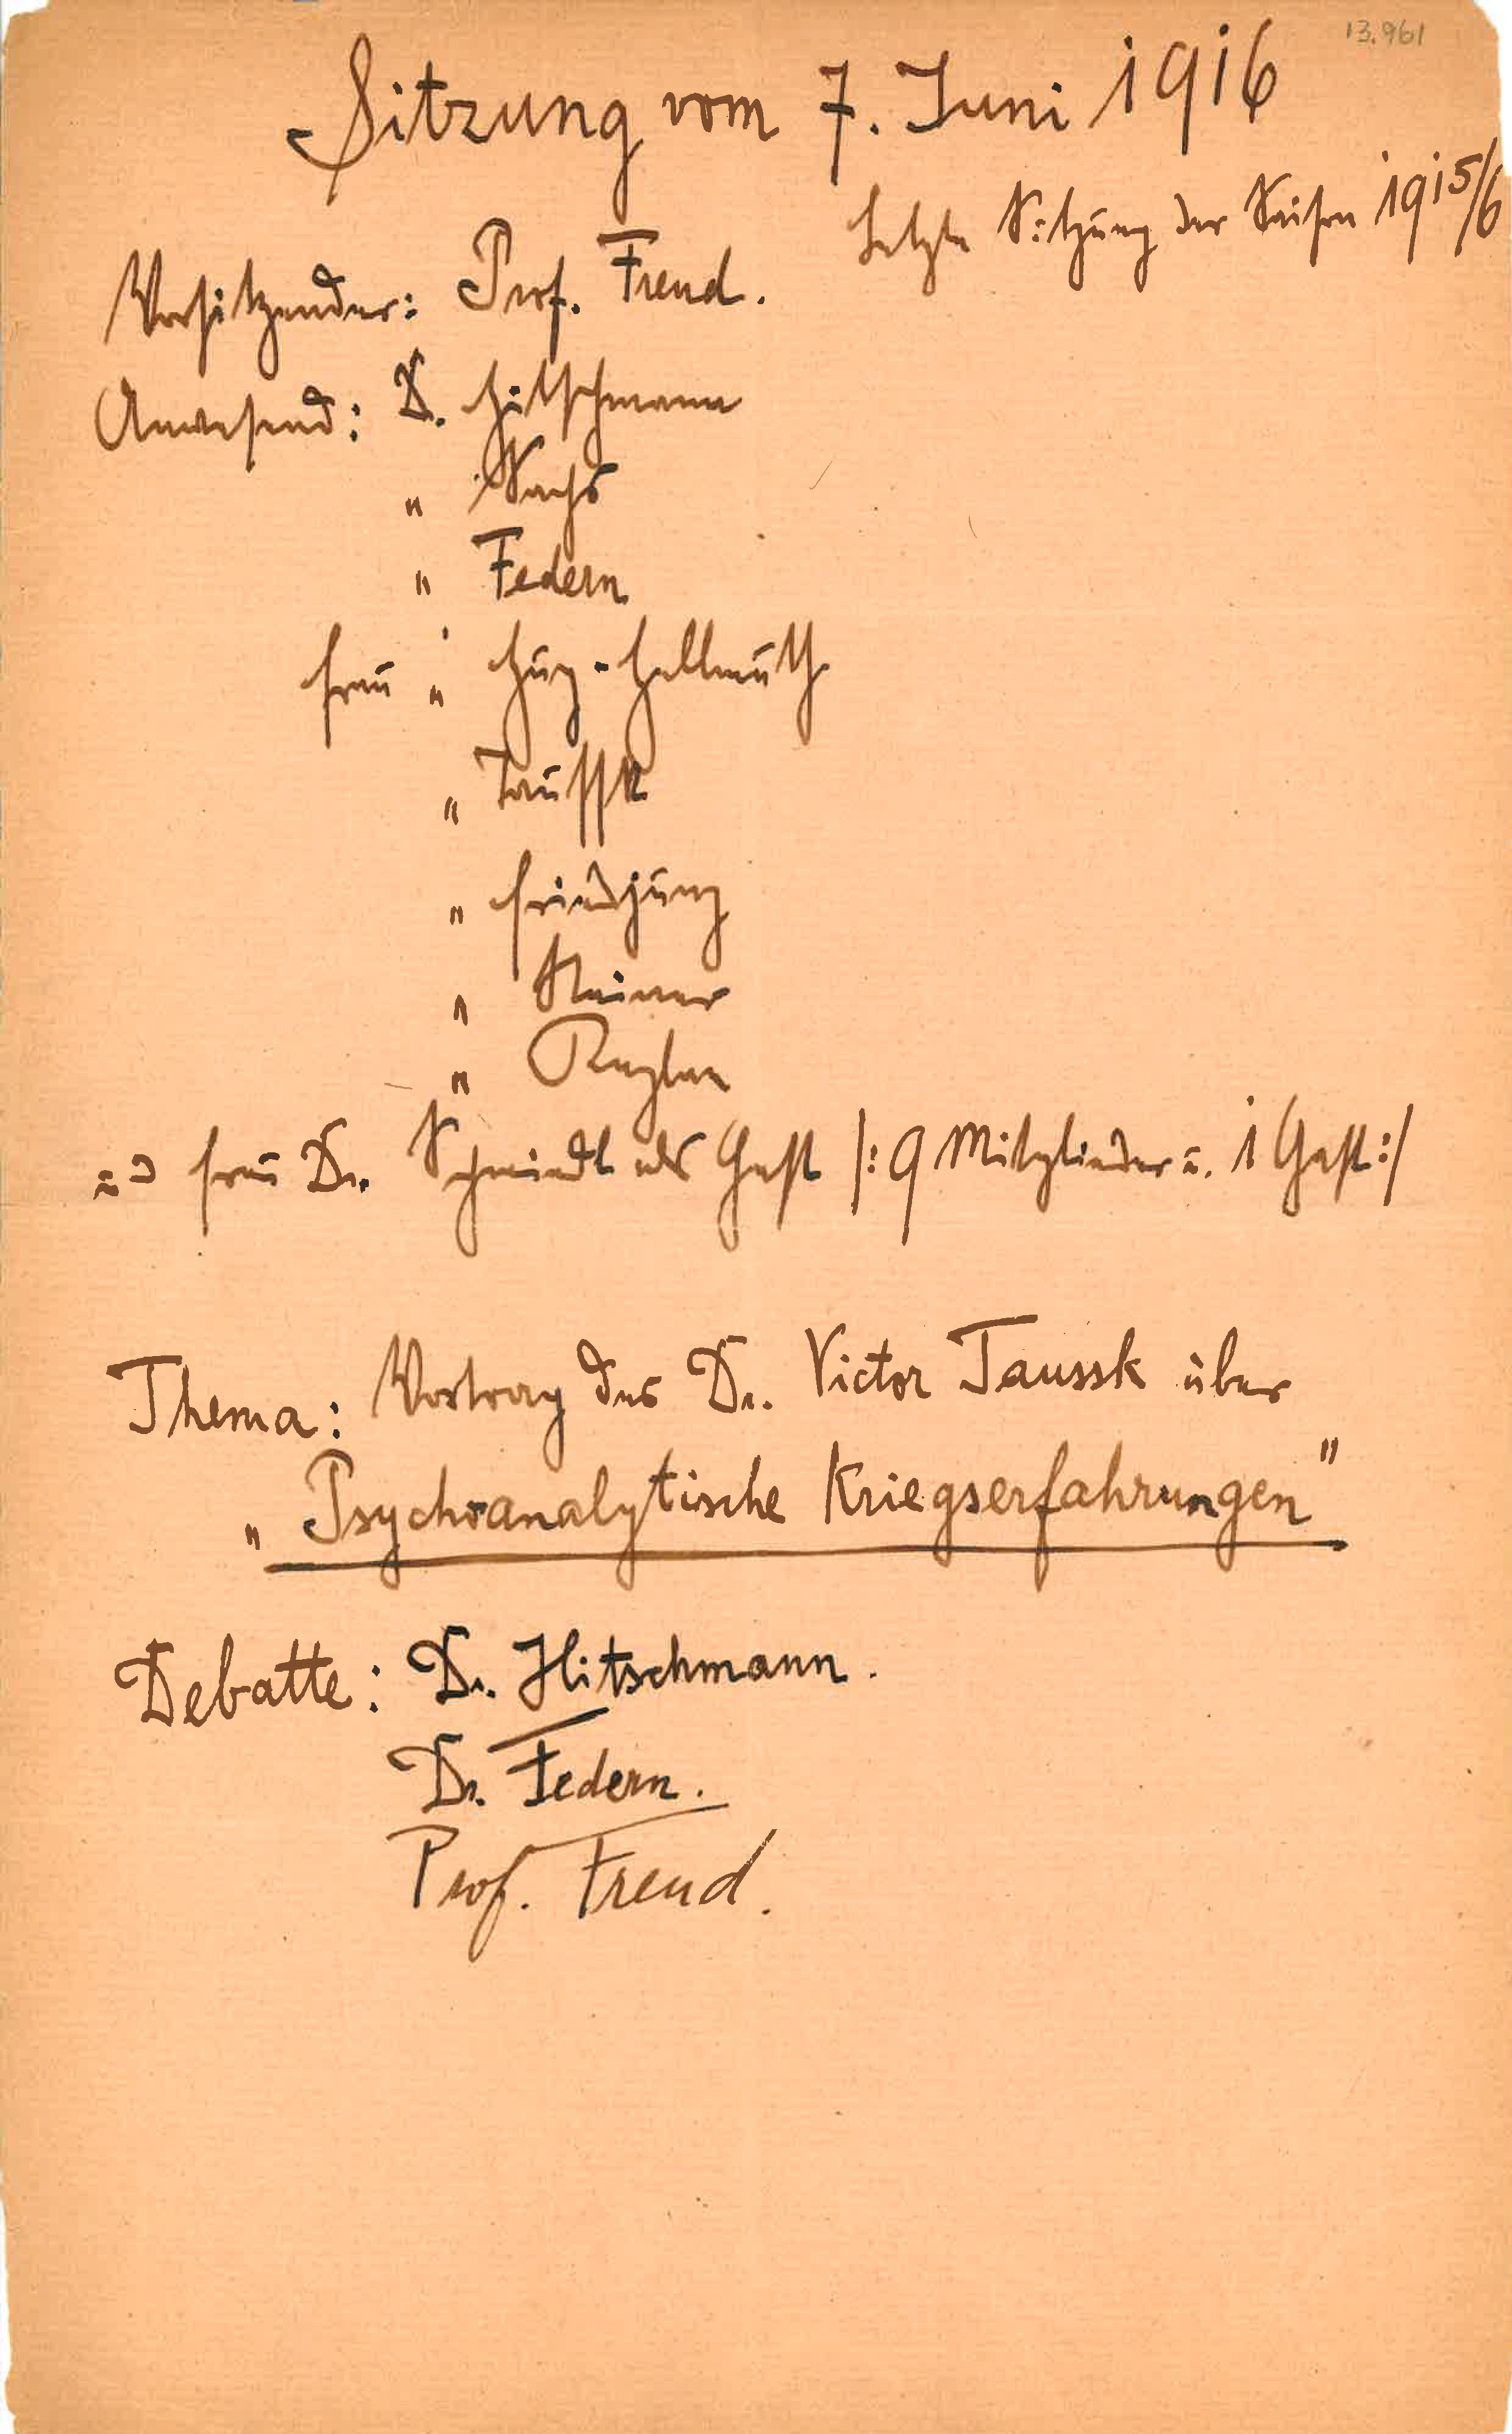 13.961
Sitzung vom 7. Juni 1916
Letzte Sitzung der Saison 1915/6
Vorsitzender: Prof. Freud.
Anwesend: Dr. Hitschmann
" Sachs
" Federn
Frau " Hug-Hellmuth
" Taussk
" Friedjung
" Steiner
" Rnglen
Frau Dr. Schmiedl als Gast /: 9 Mitglieder u. 1 Gast :/
Thema: Vortrag des Dr. Victor Taussk über
„Psychoanalytische Kriegserfahrungen"
Debatte: Dr. Hitschmann.
Dr. Federn.
Prof. Freud.